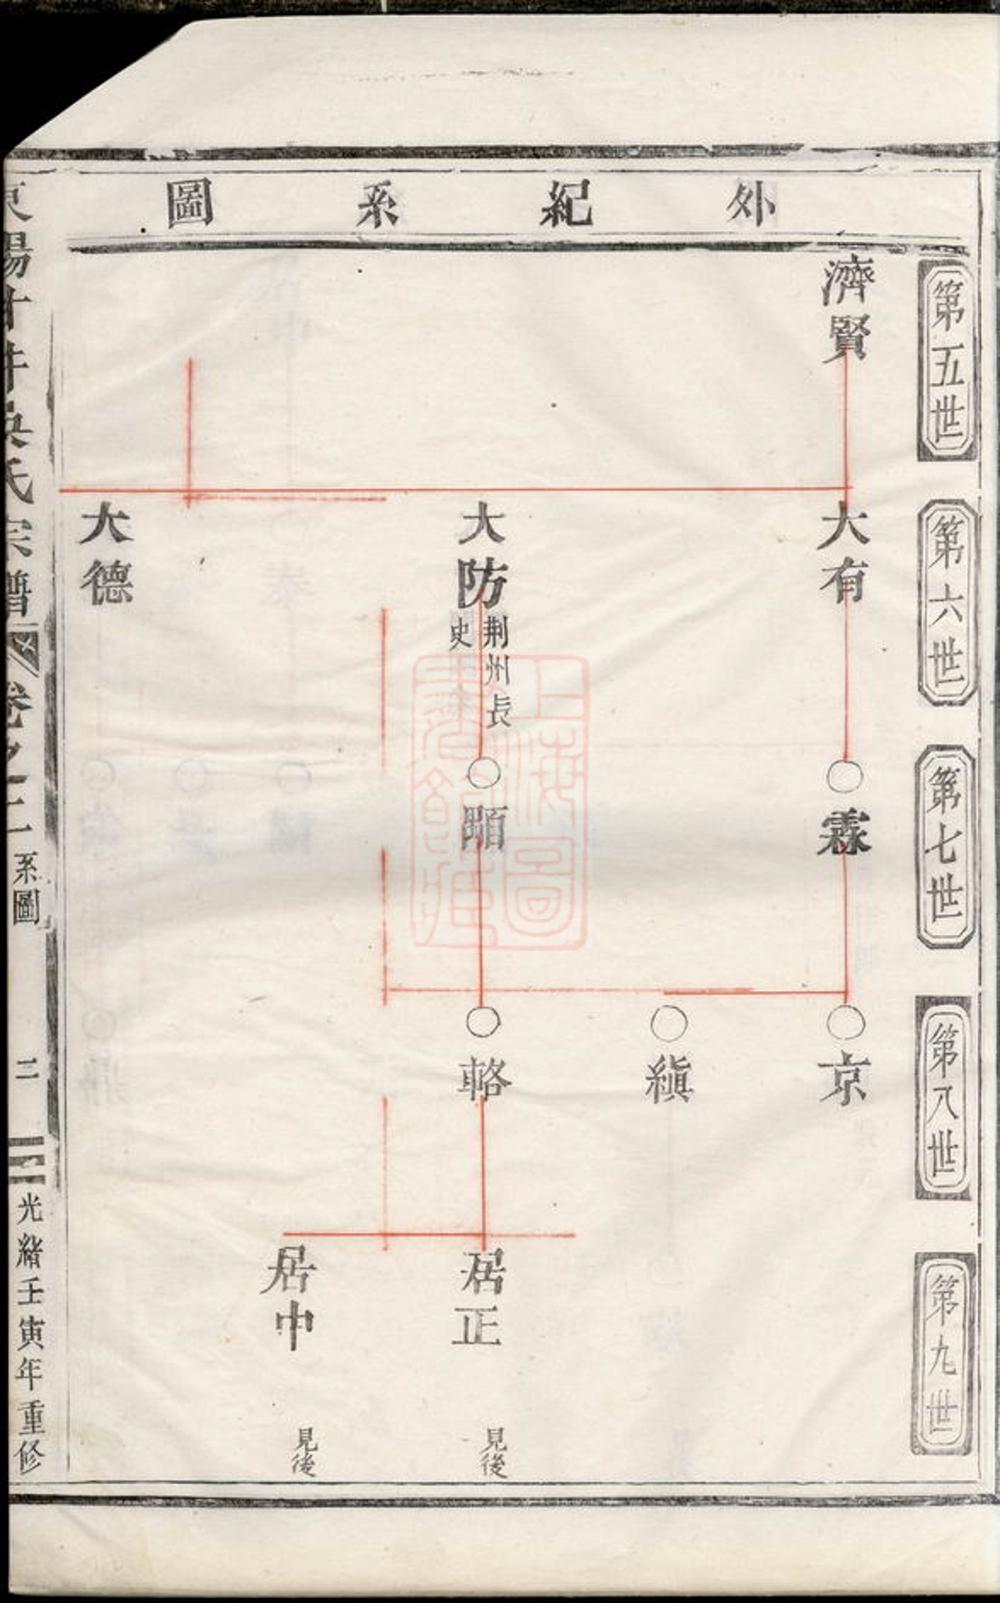 外紀系圖
第五世
第六世
第七世
第八世
第九世
濟賢
大有
霖
京
縝
大防
荆州長
史
頤
輅
居正
見後
居中
見後
大德
東陽廿井吳氏宗譜
卷之二
系圖
二
光緒壬寅年重修
上海圖
書館藏